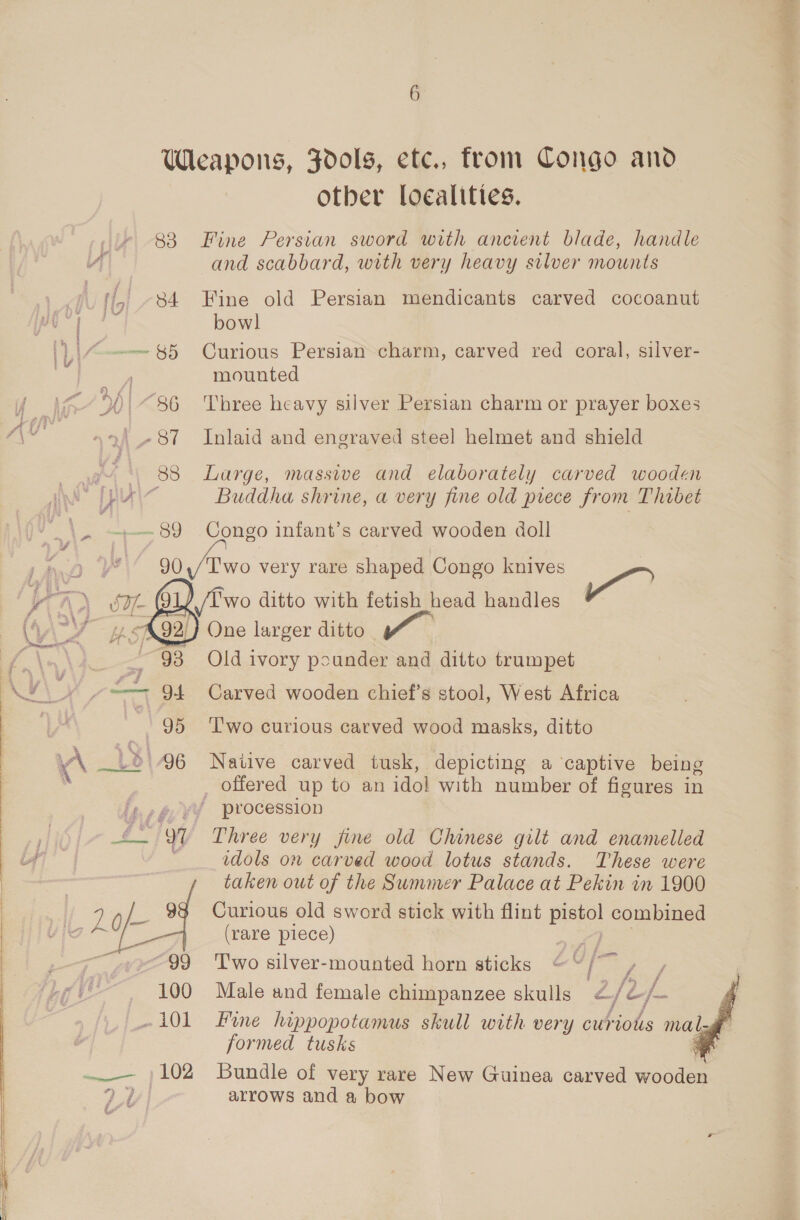 6
Weapons, Idols, etc., from Congo and
other localities.
83 Fine Persian sword with ancient blade, handle
and scabbard, with very heavy silver mounts
84 Fine old Persian mendicants carved cocoanut
bowl
85 Curious Persian charm, carved red coral, silver-
mounted
86 Three heavy silver Persian charm or prayer boxes
87 Inlaid and engraved steel helmet and shield
88 Large, massive and elaborately carved wooden
Buddha shrine, a very fine old piece from Thibet
89 Congo infant's carved wooden doll
90 Two very rare shaped Congo knives
91 Two ditto with fetish head handles
92 One larger ditto
93 Old ivory pounder and ditto trumpet
94 Carved wooden chief's stool, West Africa
95 Two curious carved wood masks, ditto
96 Native carved tusk, depicting a captive being
offered up to an idol with number of figures in
procession
97 Three very fine old Chinese gilt and enamelled
idols on carved wood lotus stands. These were
taken out of the Summer Palace at Pekin in 1900
20/- 98 Curious old sword stick with flint pistol combined
(rare piece)
99 Two silver-mounted horn sticks
100 Male and female chimpanzee skulls
101 Fine hippopotamus skull with very curious mal-
formed tusks
102 Bundle of very rare New Guinea carved wooden
arrows and a bow